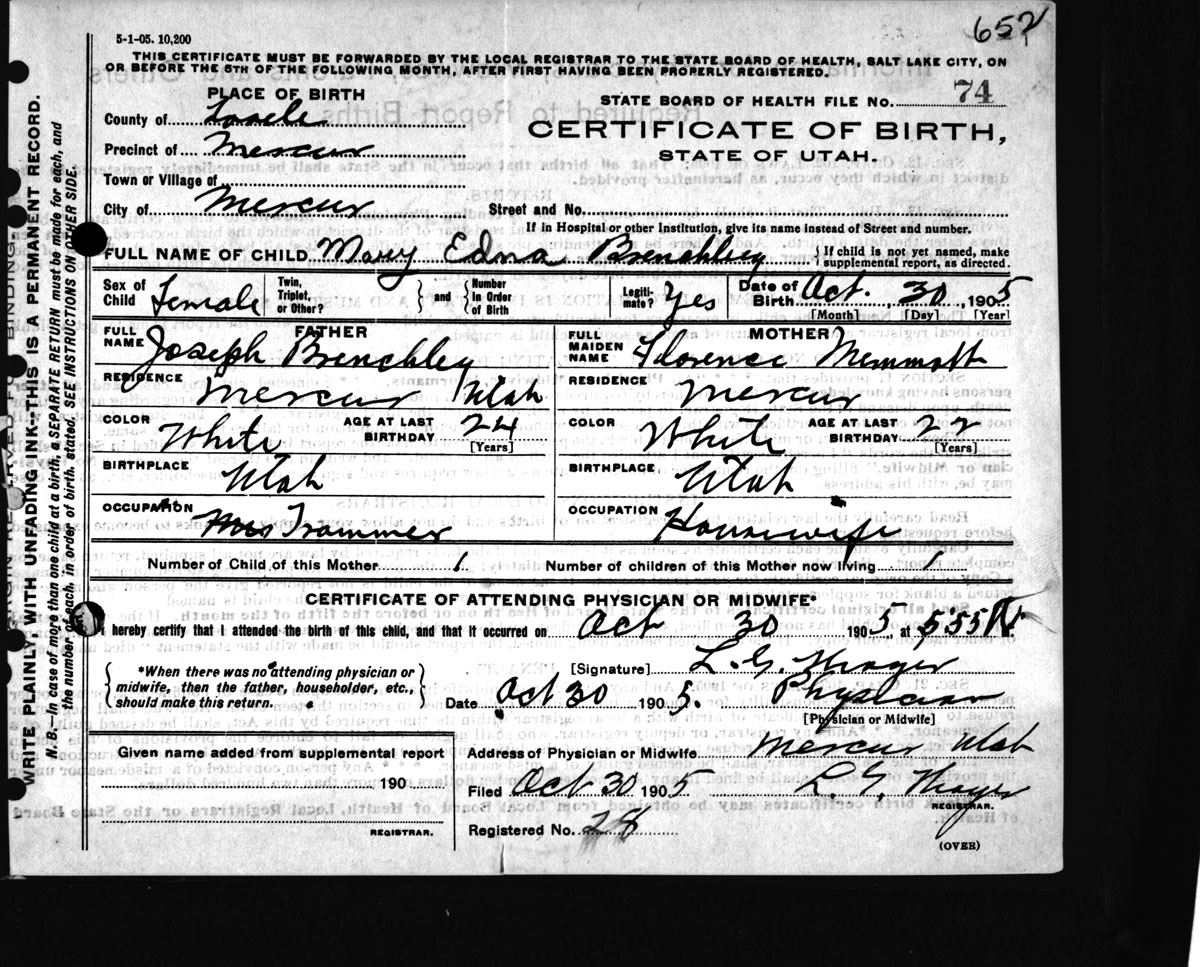 652
5-1-05. 10,200
THIS CERTIFICATE MUST BE FORWARDED BY THE LOCAL REGISTRAR TO THE STATE BOARD OF HEALTH, SALT LAKE CITY, ON
OR BEFORE THE 5TH OF THE FOLLOWING MONTH, AFTER FIRST HAVING BEEN PROPERLY REGISTERED.
PLACE OF BIRTH
STATE BOARD OF HEALTH FILE No. 74
County of Tooele
CERTIFICATE OF BIRTH,
Precinct of Mercur
STATE OF UTAH.
Town or Village of
City of Mercur Street and No.
If in Hospital or other Institution, give its name instead of Street and number.
FULL NAME OF CHILD Mary Edna Brenchley { If child is not yet named, make supplemental report, as directed.
Sex of Child Female Twin, Triplet, or Other? } and { Number In Order of Birth Legitimate? Yes Date of Birth Oct. 30, 1905
[Month] [Day] [Year]
FATHER MOTHER
FULL NAME Joseph Brenchley FULL MAIDEN NAME Florence Memmott
RESIDENCE Mercur Utah RESIDENCE Mercur
COLOR White AGE AT LAST BIRTHDAY 24 [Years] COLOR White AGE AT LAST BIRTHDAY 22 [Years]
BIRTHPLACE Utah BIRTHPLACE Utah
OCCUPATION Trammer OCCUPATION Housewife
Number of Child of this Mother 1 Number of children of this Mother now living 1
CERTIFICATE OF ATTENDING PHYSICIAN OR MIDWIFE*
I hereby certify that I attended the birth of this child, and that it occurred on Oct 30 1905, at 555
*When there was no attending physician or
midwife, then the father, householder, etc.,
should make this return.
[Signature] L. G. Thayer
Date Oct 30 1905. Physician
[Physician or Midwife]
Given name added from supplemental report
Address of Physician or Midwife Mercur Utah
190
Filed Oct 30 1905 L. G. Thayer
REGISTRAR.
REGISTRAR.
Registered No. 28
(OVER)
WRITE PLAINLY, WITH UNFADING INK--THIS IS A PERMANENT RECORD.
N. B.--In case of more than one child at a birth, a SEPARATE RETURN must be made for each, and
the number of each, in order of birth, stated. SEE INSTRUCTIONS ON OTHER SIDE.